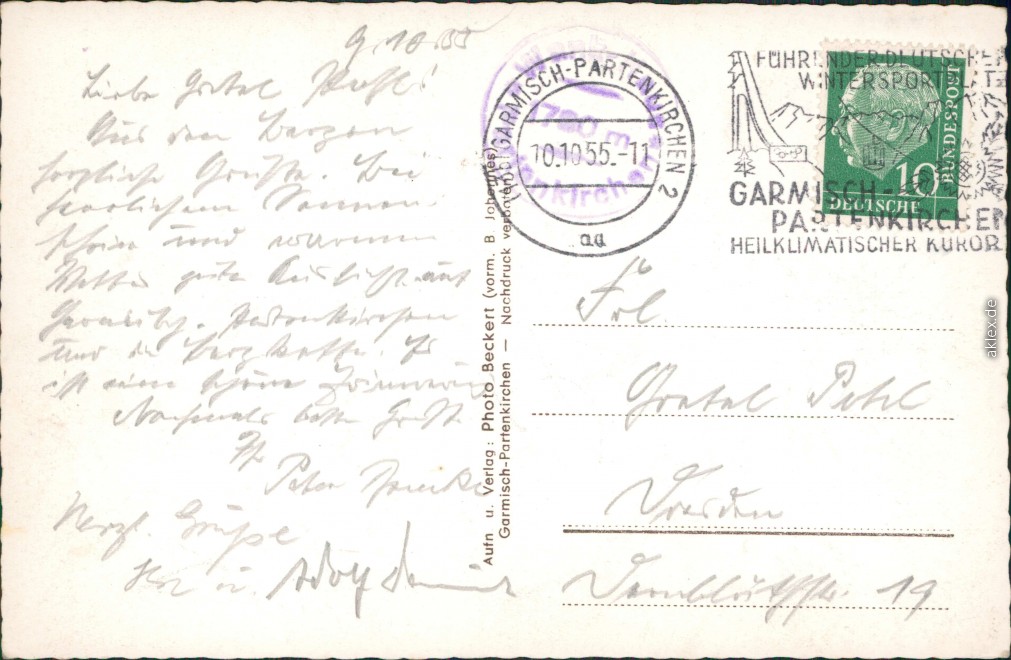 9.10.55
Liebe Gretel
Aus den Bergen
herzliche Grüße. Bei
herrlichem Sonnen-
schein und warmem
Wetter gute Aussicht auf
Garmisch-Partenkirchen
und die Bergkette. Es
ist eine schöne Erinnerung
Nochmals beste Grüße
Peter
Herzl. Grüße
u. Adolf
Aufn u. Verlag: Photo Beckert (vorm. B. Johannes)
Garmisch-Partenkirchen — Nachdruck verboten
GARMISCH-PARTENKIRCHEN 2
10.10.55.-11
aa
FÜHRENDER DEUTSCHER
WINTERSPORTPLATZ
GARMISCH-
PARTENKIRCHEN
HEILKLIMATISCHER KUROR
10
DEUTSCHE
BUNDESPOST
Frl
Gretel
Dresden
Dornblüthstr. 19
aklex.de